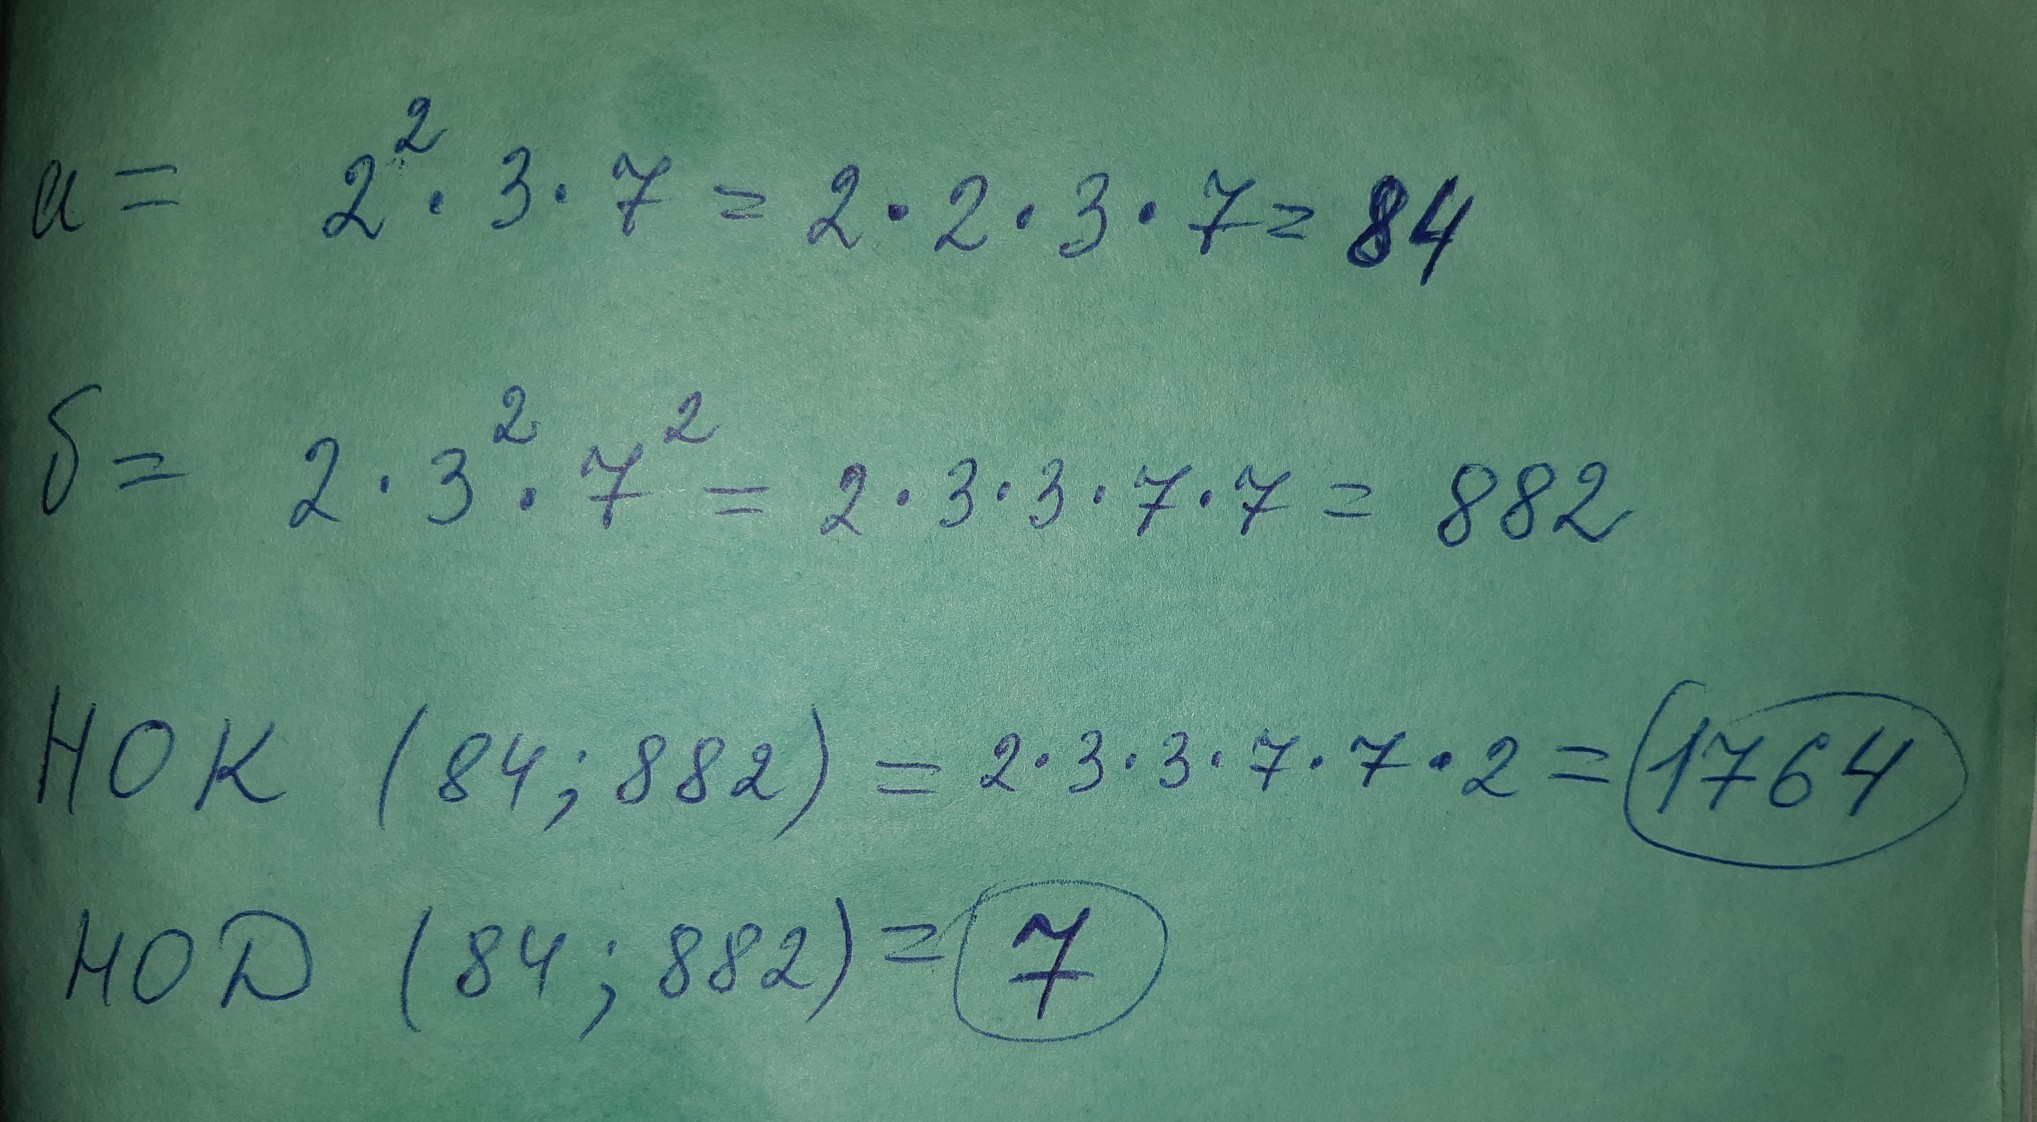 а = 2² · 3 · 7 = 2 · 2 · 3 · 7 = 84
б = 2 · 3² · 7² = 2 · 3 · 3 · 7 · 7 = 882
НОК (84; 882) = 2 · 3 · 3 · 7 · 7 · 2 = 1764
НОД (84; 882) = 7